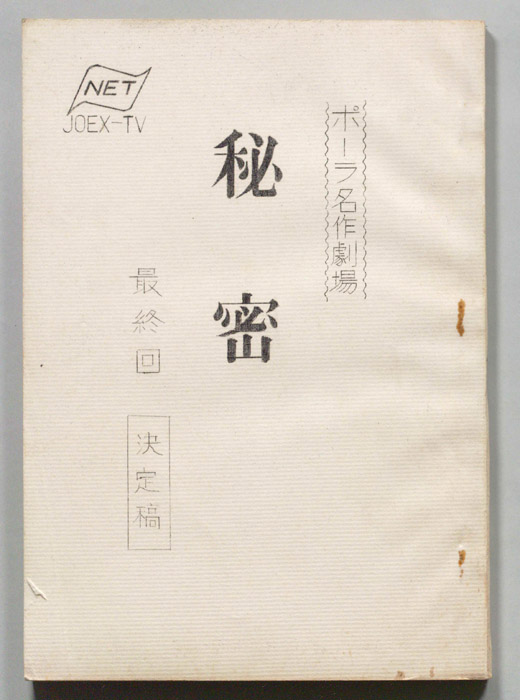 NET
JOEX-TV
ポーラ名作劇場
秘密
最終回
決定稿